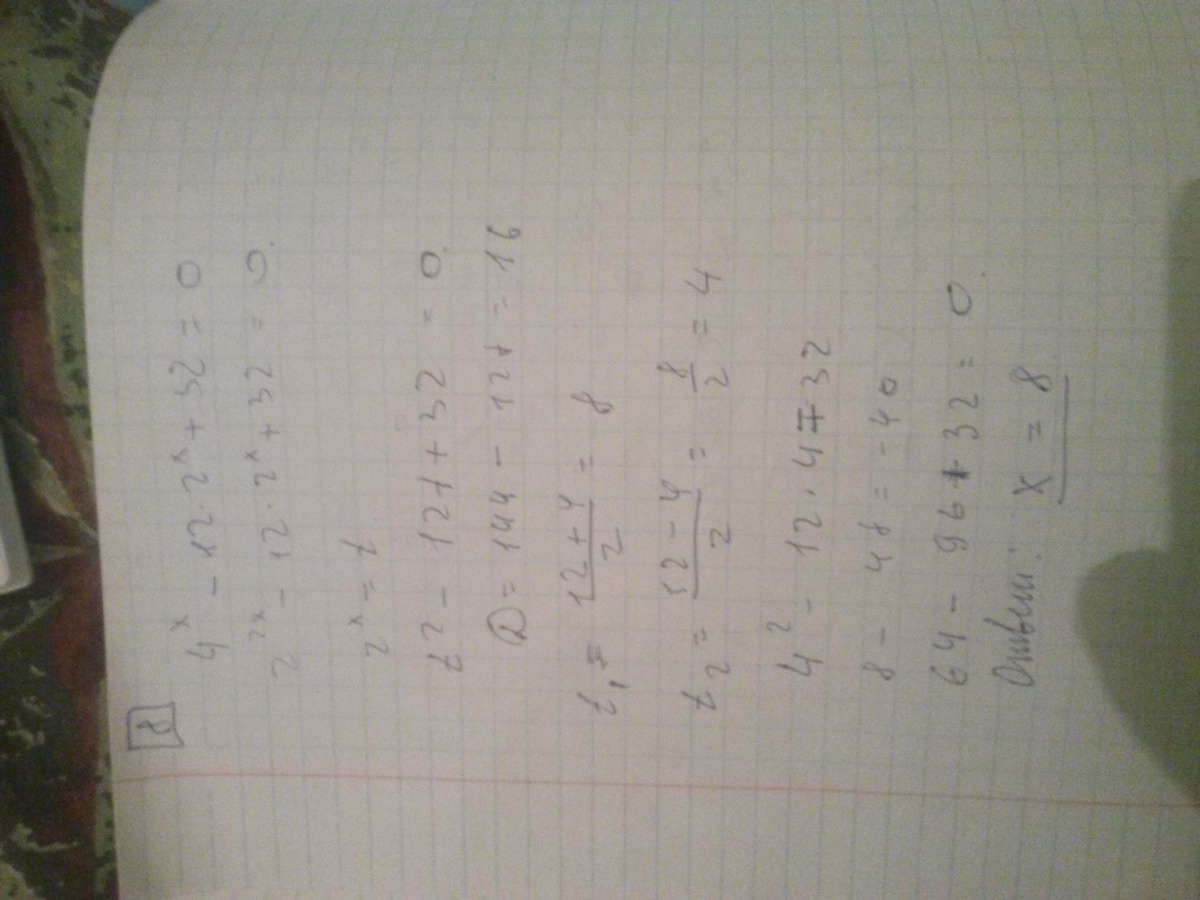 8
4^x - 12 · 2^x + 32 = 0
2^2x - 12 · 2^x + 32 = 0.
2^x = t
t^2 - 12t + 32 = 0.
D = 144 - 128 = 16
t₁ = (12 + 4)/2 = 8
t₂ = (12 - 4)/2 = 8/2 = 4
4^2 - 12 · 4 + 32
8 - 48 = - 40
64 - 96 + 32 = 0.
Ответ: x = 8